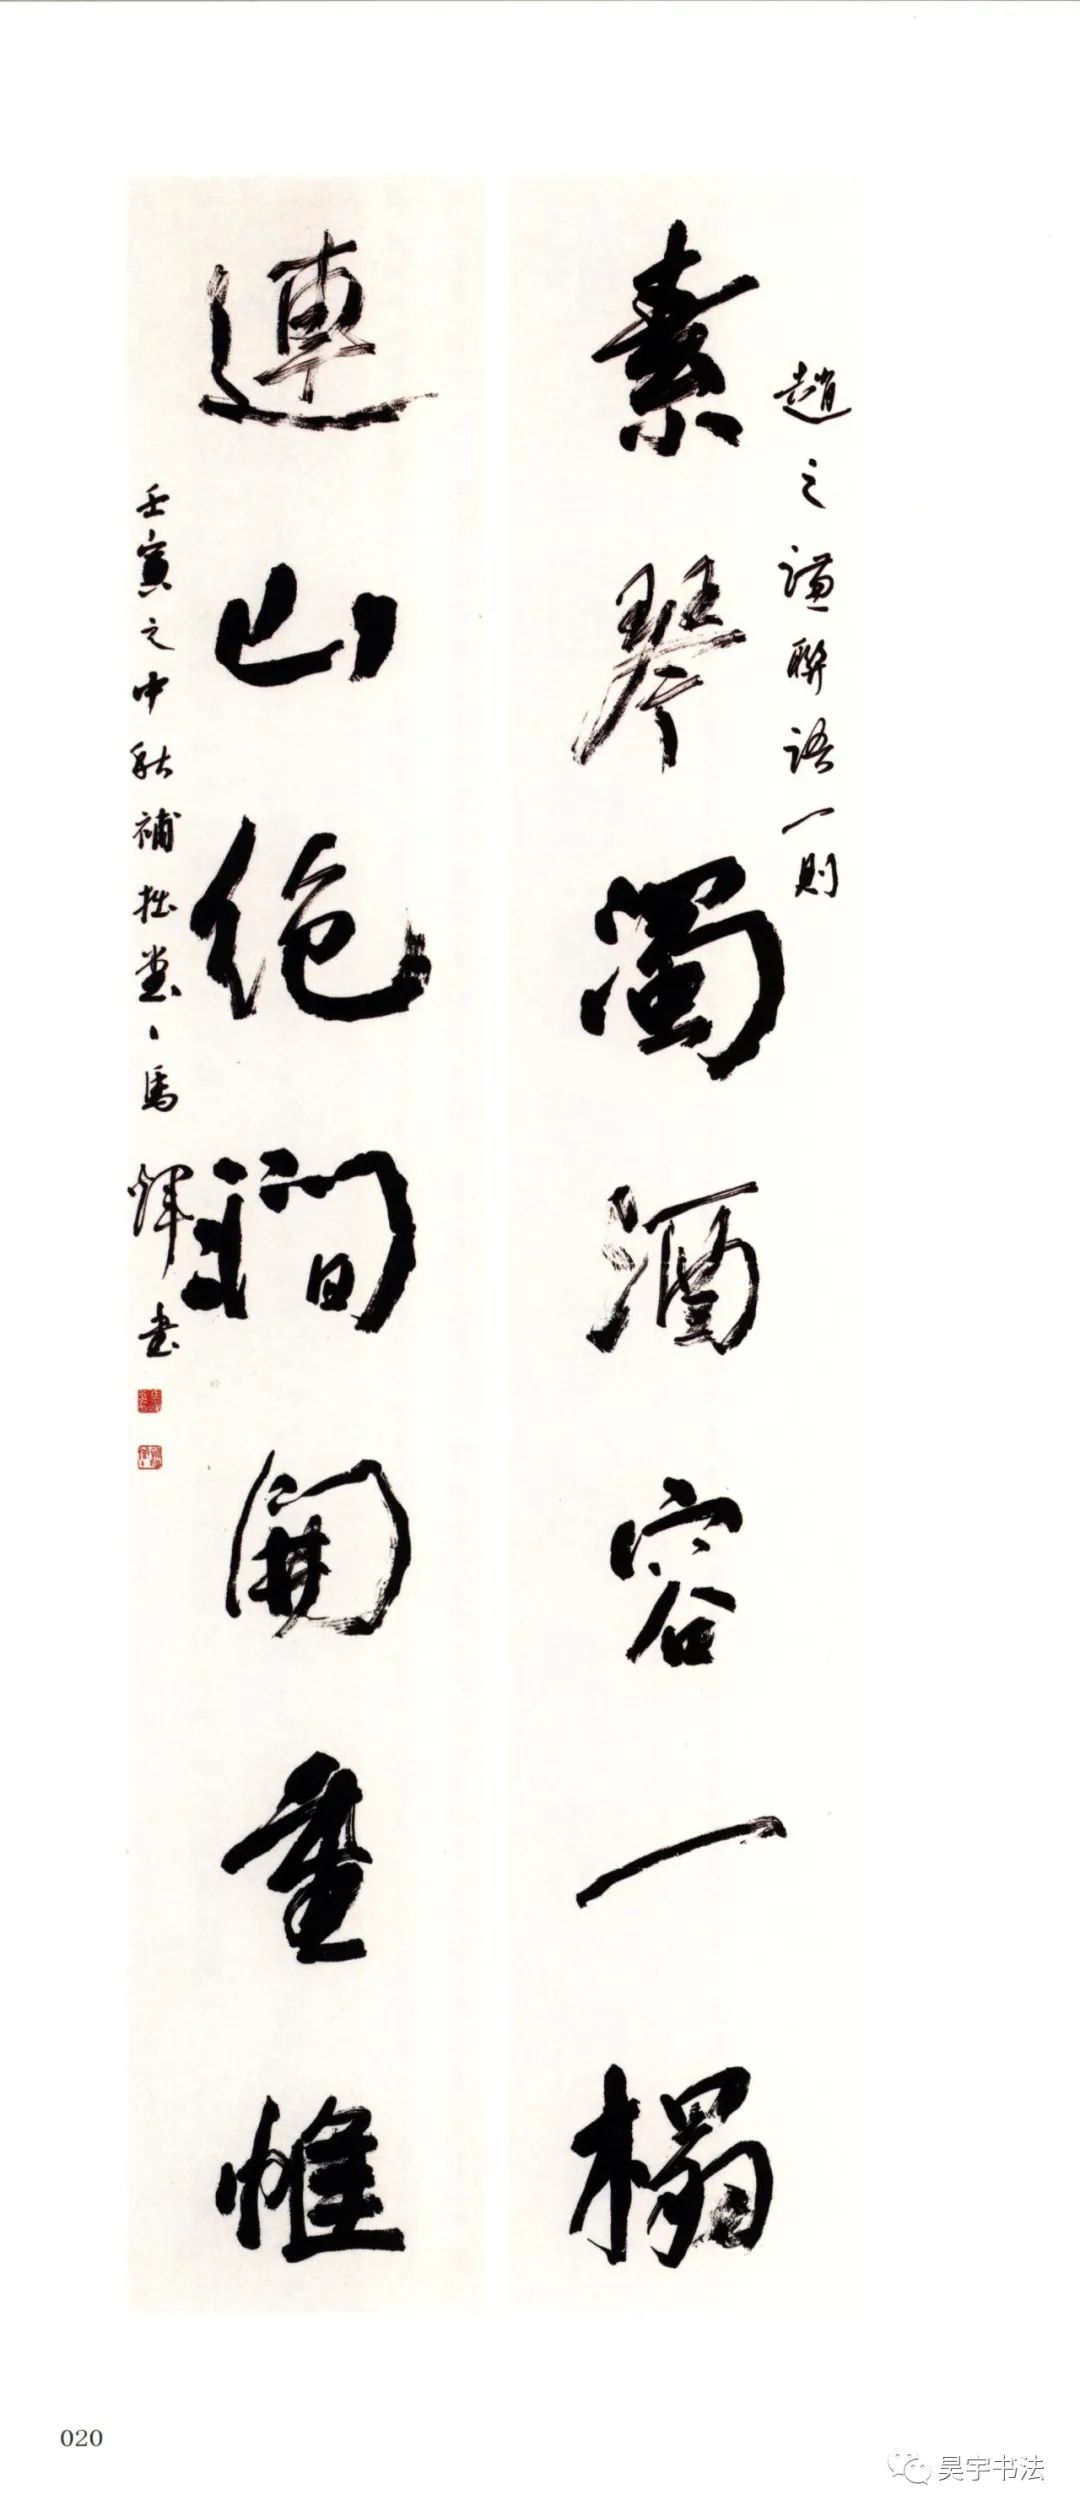 趙之謙聯語一則
素琴蜀酒容一榻
連山絶澗開重帷
壬寅之中秋補拙堂
馬
輝書
020
昊宇书法